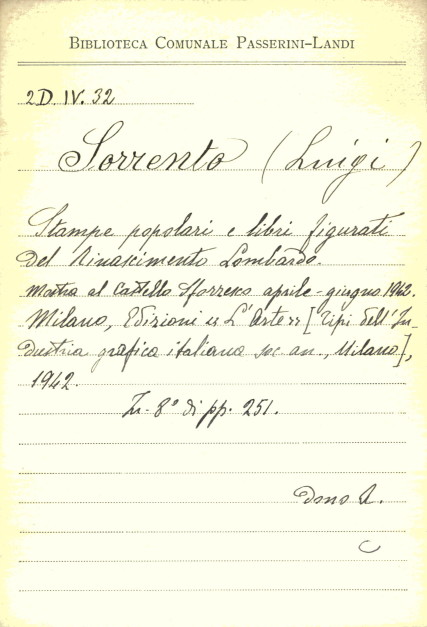 BIBLIOTECA COMUNALE PASSERINI-LANDI
2D. IV. 32
Sorrento (Luigi)
Stampe popolari e libri figurati
del Rinascimento Lombardo.
Mostra al Castello Sforzesco aprile-giugno 1942.
Milano, Edizioni « L'Arte » [Tipi dell'In-
dustria grafica italiana soc. an., Milano],
1942.
In-8° di pp. 251.
dono
C